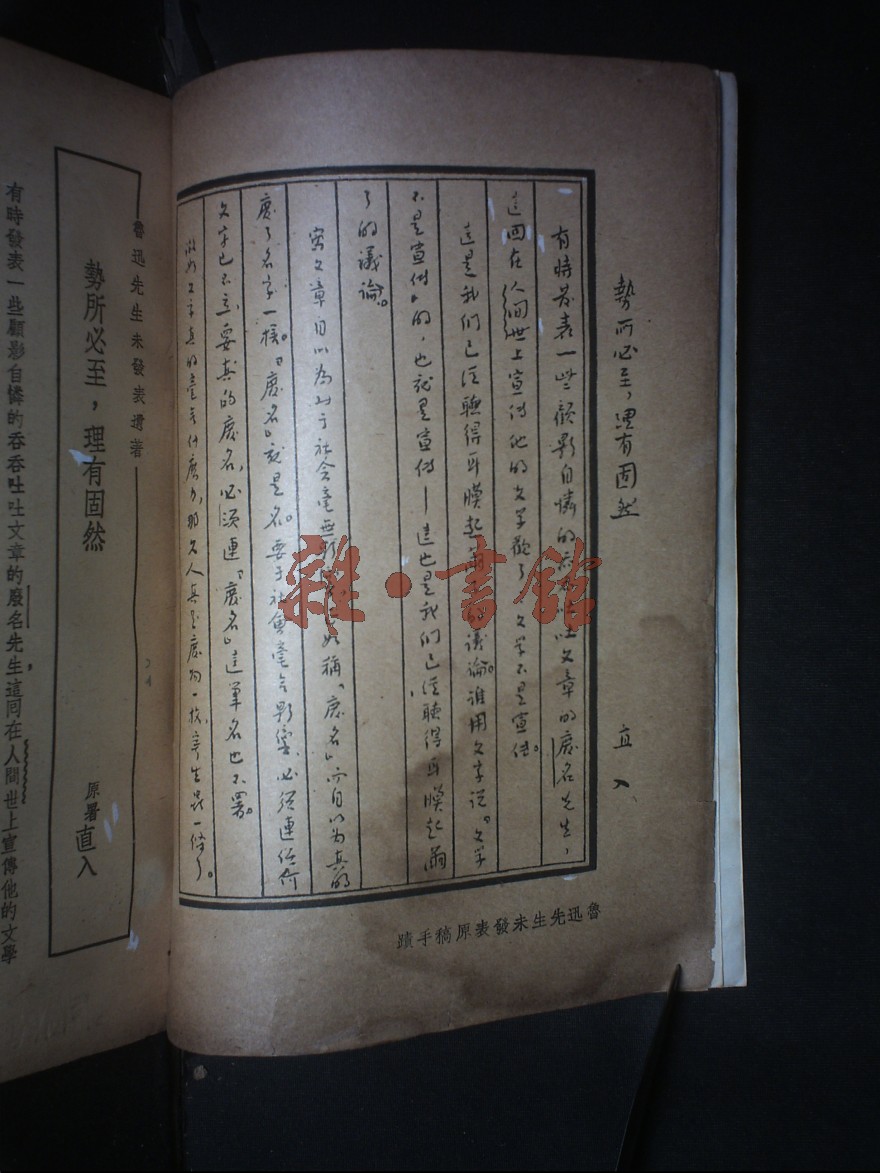 勢所必至，理有固然
直入
有時發表一些顧影自憐的吞吞吐吐文章的廢名先生，
這回在人间世上宣傳他的文学觀了：文学不是宣傳。
這是我们已經聽得耳膜起繭了的議論。誰用文字說「文学
不是宣傳」的，也就是宣傳——這也是我们已經聽得耳膜起繭
了的議論。
寫文章自以為对于社会毫無影響，正如稱「廢名」而自以為真的
廢了名字一樣。「廢名」就是名。要于社會毫無影響，必須連任何
文字也不立，要真的廢名，必須連「廢名」這筆名也不署。
假如文字真的毫無什麽力，那文人真是廢物一枚，寄生蟲一條了。
魯迅先生未發表原稿手蹟
魯迅先生未發表遺著
勢所必至，理有固然
原署直入
有時發表一些顧影自憐的吞吞吐吐文章的廢名先生，這回在人間世上宣傳他的文學
雜·書館